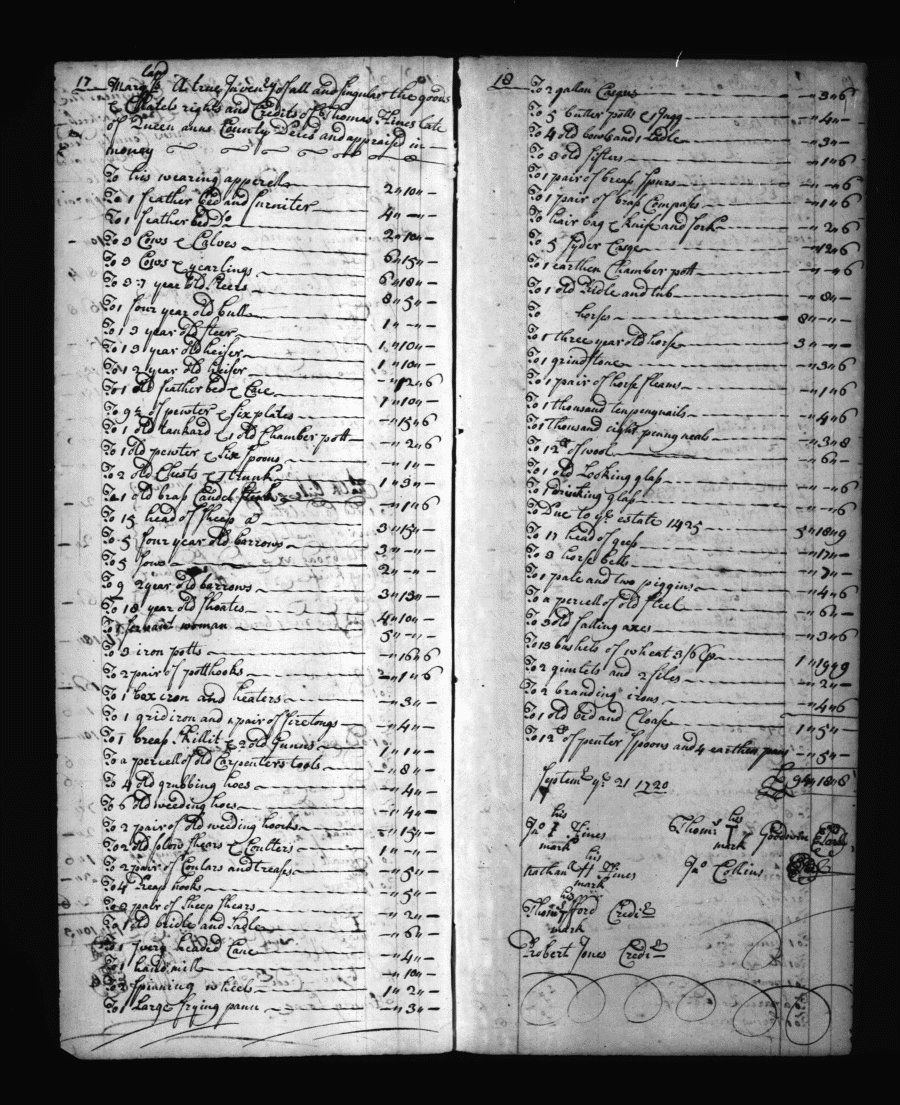 17
Maryld A true Inventy of all and singular the goods
& Chatels rights and Credits of Thomas Hines late
of Queen anns County Deced and appraised in
money
To his wearing apperell 2"10"-
To 1 feather bed and furniter 4"-"-
To 1 feather bed Do 2"10"-
To 3 Cows & Calves 6"15"-
To 3 Cows & yearlings 6"18"-
To 3 7 year old steers 8"5"-
To 1 four year old bull 1"-"-
To 1 3 year old steer 1"10"-
To 1 3 year old heifer 1"10"-
To 1 2 year old heifer -"12"6
To 1 old feather bed & Case 1"10"-
To 9½ of pewter & six plates -"15"6
To 1 old tankard & 1 old Chamber pott -"2"6
To 1 old pewter & six spoons -"1"-
To 2 old Chests & 1 trunk 1"3"-
To 1 old brass Candlestick -"1"6
To 15 head of sheep a 3"15"-
To 5 four year old barrows 3"-"-
To 5 sows 2"-"-
To 9 2 year old barrows 3"13"-
To 18 year old shoates 4"10"-
To 1 servant woman 5"-"-
To 3 iron potts -"16"6
To 2 pair of potthooks -"1"6
To 1 box iron and heaters -"3"-
To 1 gridiron and 1 pair of firetongs -"4"-
To 1 breass skillit & 2 old Gunnes 1"1"-
To a percell of old Carpenters tools -"8"-
To 4 old grubbing hoes -"4"-
To 6 old weeding hoes -"4"-
To 2 pair of old weeding hoocks -"15"-
To 2 old plow shears & Coulters 1"-"-
To 2 pair of Coulars and treases -"5"-
To 4 reap hooks -"5"-
To 2 pair of sheep shears -"2"-
To 1 old bridle and sadle -"6"-
To 1 Ivery headed Cane -"4"-
To 1 hand mill -"10"-
To 2 spinning wheels 1"2"-
To 1 Large frying pann -"3"-
18
To 2 gallon Casques -"3"6
To 5 butter potts & 1 Jugg -"4"-
To 4 old bowls and 1 Ridle -"3"-
To 3 old sifters -"1"6
To 1 pair of brass spurs -"-"6
To 1 pair of brass Compass -"1"6
To hair bag & knife and fork -"2"6
To 5 syder Casqs -"12"6
To 1 earthen Chamber pott -"-"6
To 1 old Ridle and tub -"8"-
To horses 8"-"-
To 1 three year old horse 3"-"-
To 1 grindstone -"3"6
To 1 pair of horse fleams -"1"6
To 1 thousand ten penynails -"4"6
To 1 thousand eight penny neals -"3"8
To 12 of wool -"6"-
To 1 old Looking glass -"-"6
To 1 drinking glass -"-"6
To Due to ye estate 1425 5"18"9
To 17 head of gees -"17"-
To 3 horse bells -"7"-
To 1 pale and two piggins -"4"6
To a percell of old steel -"6"-
To 3 old falling axes -"3"6
To 13 bushels of wheat 3/6 p 1"19"9
To 2 gimlets and 2 files -"2"-
To 2 branding irons -"4"6
To 1 old bed and Cloase 1"5"-
To 12 of pewter spoons and 4 earthen pans -"5"-
Septembr ye 21 1720 £94"18"8
his
Jno I Hines
mark
his
Thoms T Goodwin
mark
his
nathan H Hines
mark
Jno Collins
his
Thom Ford Credir
mark
Robert Jones Credir